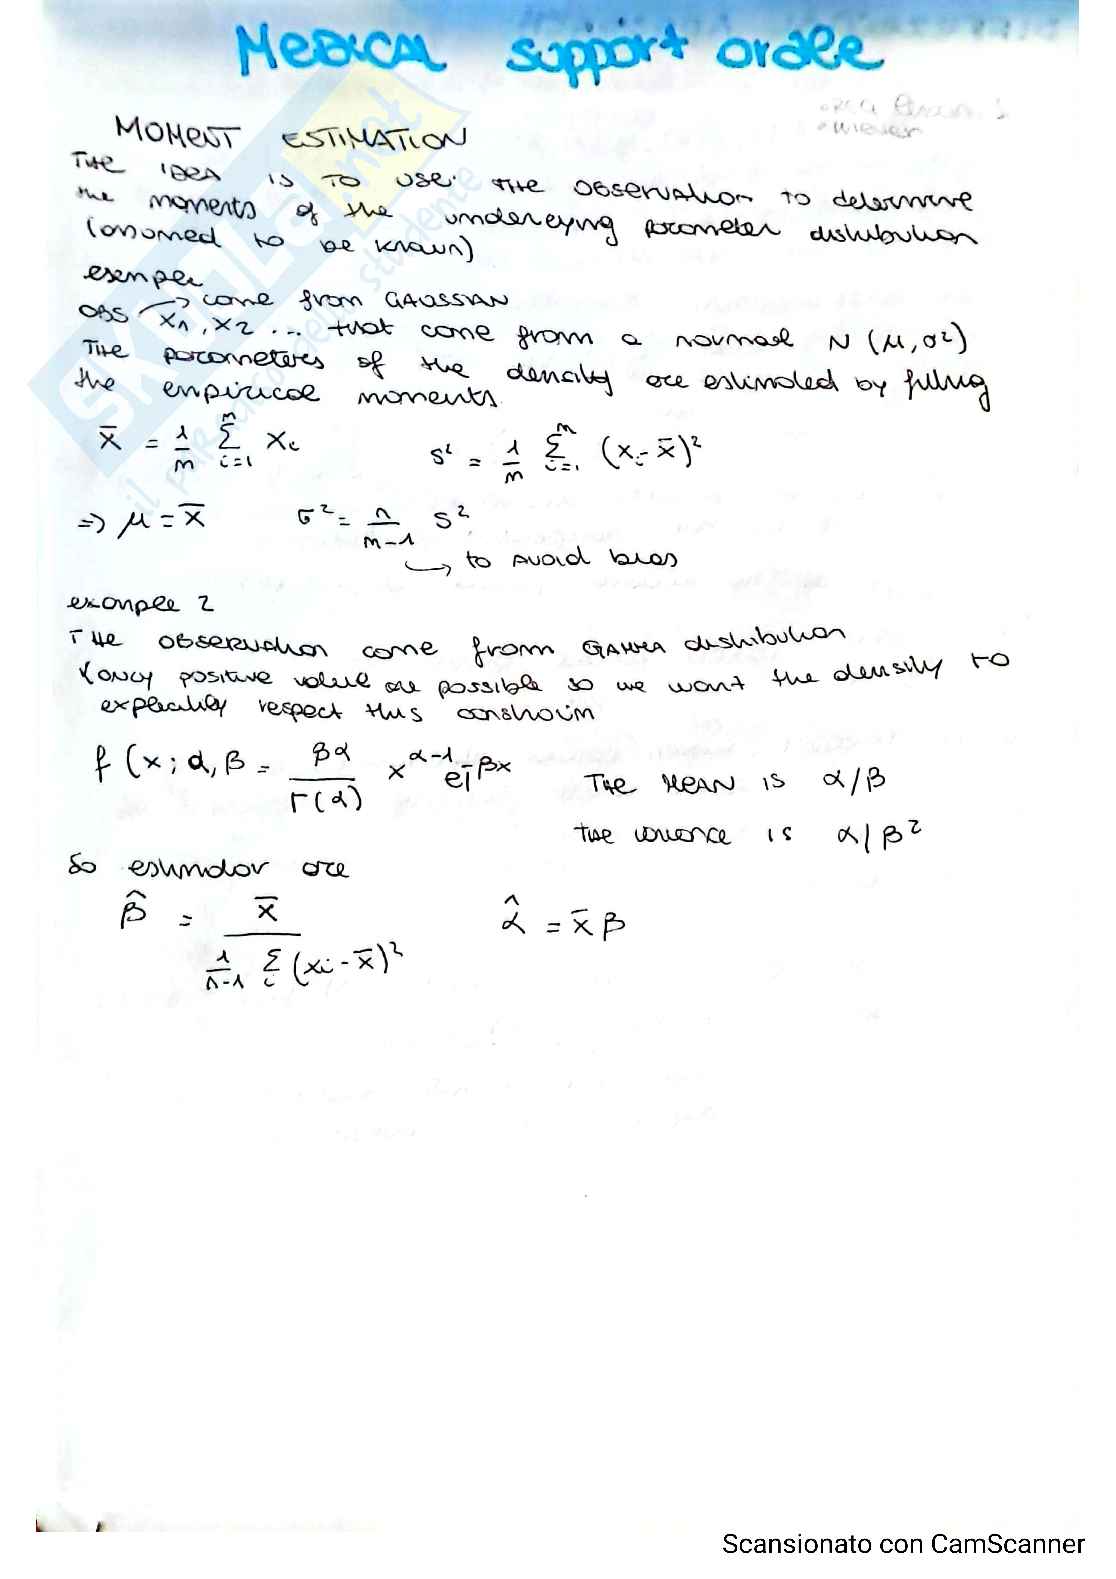 MEDICAL support orale
MOMENT ESTIMATION
THE IDEA IS TO USE THE OBSERVATION TO determine
the moments of the underlying parameter distribution
(assumed to be known)
esemple
OBS → come from GAUSSIAN
X1, X2 ... that come from a normal N (μ, σ2)
The parameters of the density are estimated by filling
the empirical moments.
x̄ = 1/m Σ i=1 m Xi    S² = 1/m Σ i=1 m (Xi - x̄)²
=> μ = x̄    σ² = n/m-1 S²
↳ to AVOID bias
example 2
THE OBSERVATION come from GAMMA distribution
(only positive value are possible so we want the density to
explicitly respect this constraim
f (x; α, β = βα/Γ(α) x^α-1 e^-βx    THE MEAN IS α/β
the variance is α/β²
So estimator are
β̂ = x̄ / 1/n-1 Σ i (xi - x̄)²    α̂ = x̄ β
SKUOLA.net
il paradiso dello studente
Scansionato con CamScanner